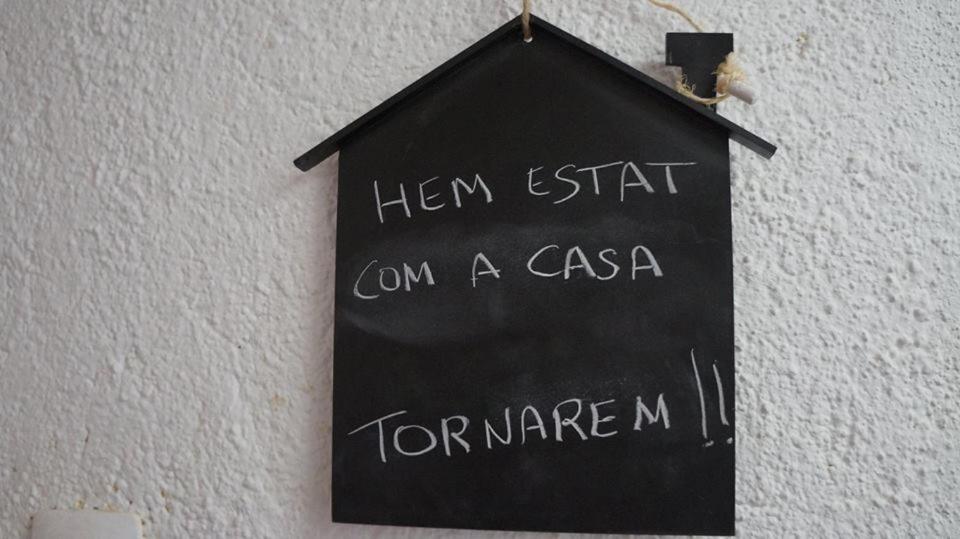 HEM ESTAT
COM A CASA
TORNAREM !!